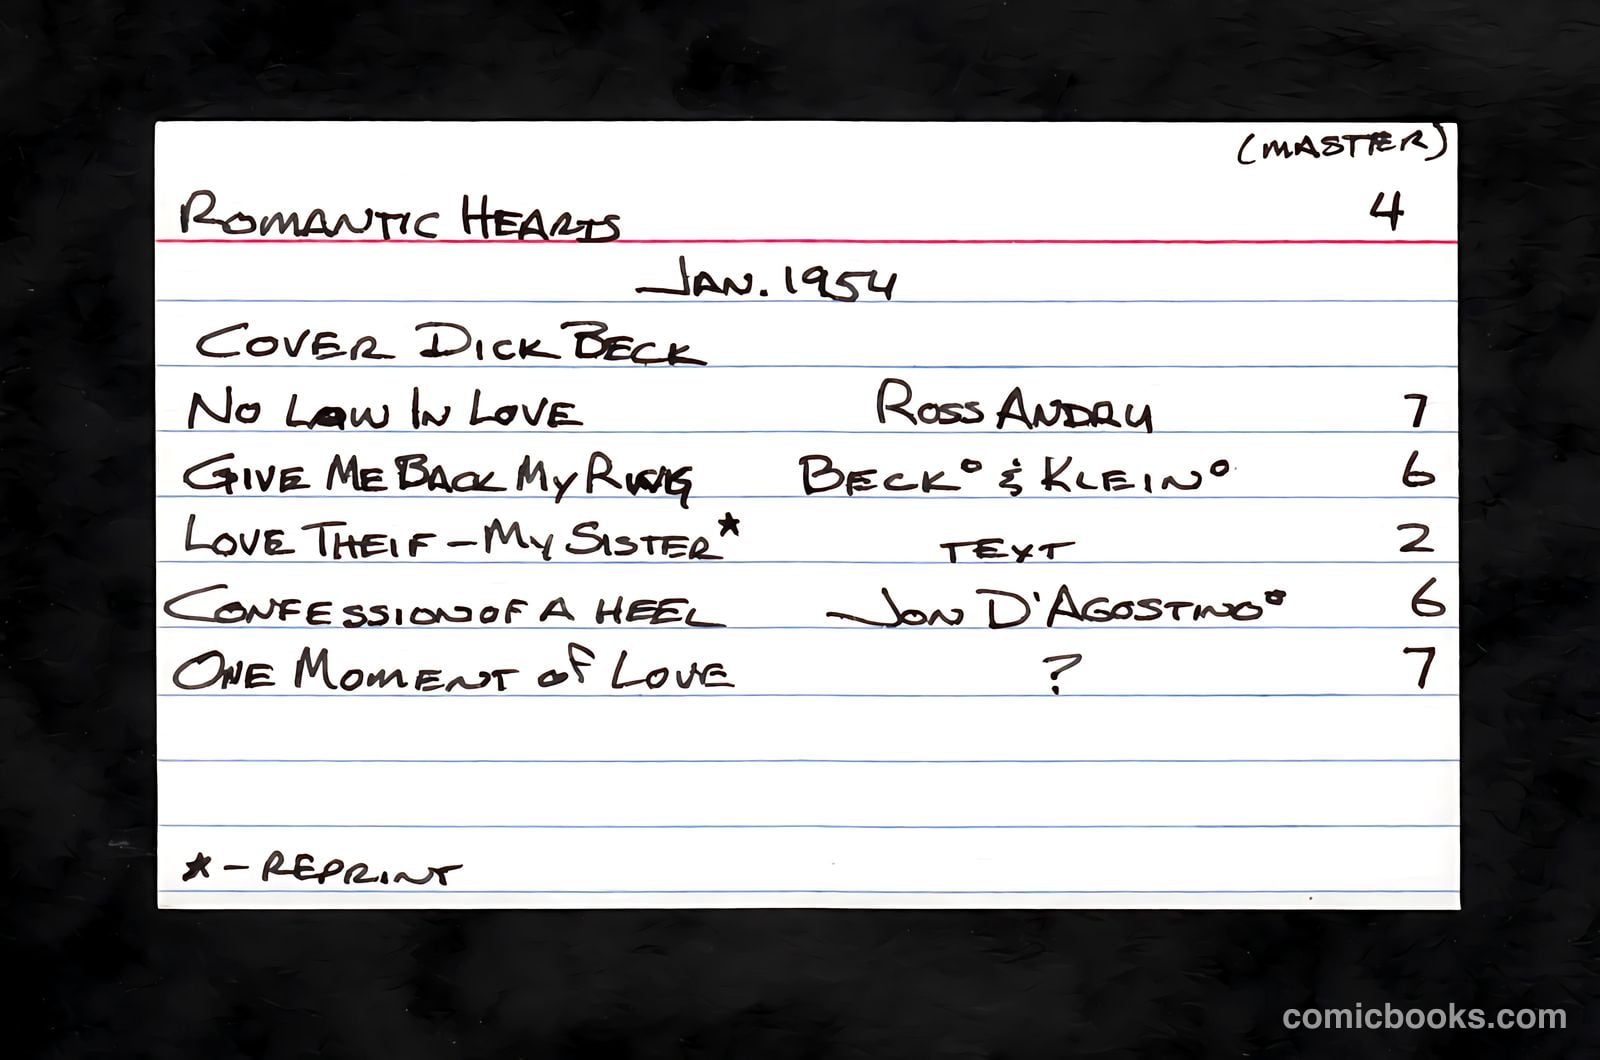 (MASTER)
ROMANTIC HEARTS 4
JAN. 1954
COVER DICK BECK
NO LAW IN LOVE ROSS ANDRU 7
GIVE ME BACK MY RING BECK° & KLEIN° 6
LOVE THEIF - MY SISTER★ TEXT 2
CONFESSION OF A HEEL JON D'AGOSTINO° 6
ONE MOMENT OF LOVE ? 7
★ - REPRINT
comicbooks.com